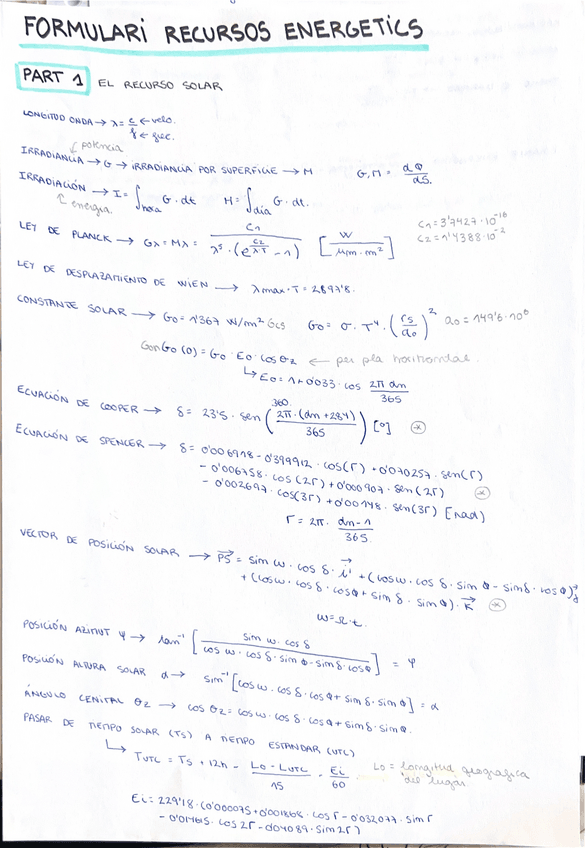 FORMULARI RECURSOS ENERGETICS
PART 1 EL RECURSO SOLAR
LONGITUD ONDA → λ = c/f ← velo. ← frec.
↓ potencia
IRRADIANCIA → G → IRRADIANCIA POR SUPERFICIE → M   G, M = dΦ/dS.
IRRADIACIÓN → I = ∫hora G · dt   H = ∫día G · dt.
↑ energia.
LEY DE PLANCK → Gλ = Mλ = C1/(λ⁵ · (e^(C2/λT) - 1)) [W/µm · m²]
C1 = 3'7427 · 10⁻¹⁶
C2 = 1'4388 · 10⁻²
LEY DE DESPLAZAMIENTO DE WIEN → λmax · T = 2897'8.
CONSTANTE SOLAR → G0 = 1'367 W/m² Gcs   G0 = σ · T⁴ · (rs/a0)²   a0 = 149'6 · 10⁶
Gon G0 (0) = G0 · E0 · cos θz ← per pla horitzontal.
↳ E0 = 1 + 0'033 · cos 2π dn/365
ECUACIÓN DE COOPER → δ = 23'5 · sen (360. 2π · (dn + 284)/365) [º] (*)
ECUACIÓN DE SPENCER → δ = 0'006918 - 0'399912 · cos(Γ) + 0'070257 · sen(Γ)
- 0'006758 · cos(2Γ) + 0'000907 · sen(2Γ) (*)
- 0'002697 · cos(3Γ) + 0'00148 · sen(3Γ) [rad]
Γ = 2π · dn - 1/365.
VECTOR DE POSICIÓN SOLAR → PS = sin w · cos δ · i + (cos w · cos δ · sin φ - sin δ · cos φ) j
+ (cos w · cos δ · cos φ + sin δ · sin φ) · K (*)
w = Ω · t.
POSICIÓN AZIMUT Ψ → tan⁻¹ [sin w · cos δ/(cos w · cos δ · sin φ - sin δ · cos φ)] = Ψ
POSICIÓN ALTURA SOLAR α → sin⁻¹ [cos w · cos δ · cos φ + sin δ · sin φ] = α
ÁNGULO CENITAL θz → cos θz = cos w · cos δ · cos φ + sin δ · sin φ.
PASAR DE TIEMPO SOLAR (TS) A TIEMPO ESTANDAR (UTC)
↳ TUTC = TS + 12h - L0 - LUTC/15 - Ei/60   L0 = longitud geografica
del lugar.
Ei = 229'18 · (0'000075 + 0'001868 · cos Γ - 0'032077 · sin Γ
- 0'014615 · cos 2Γ - 0'04089 · sin 2Γ)